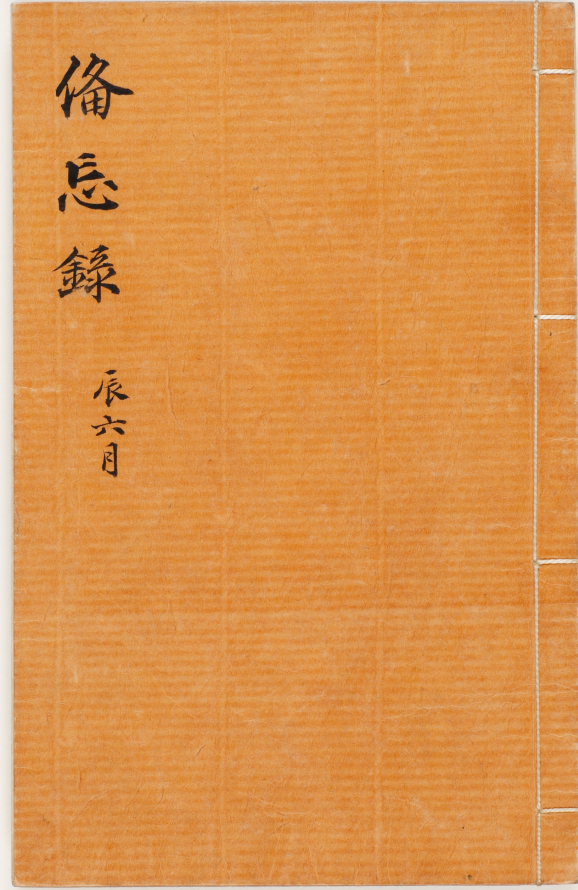 備忘錄
辰六月